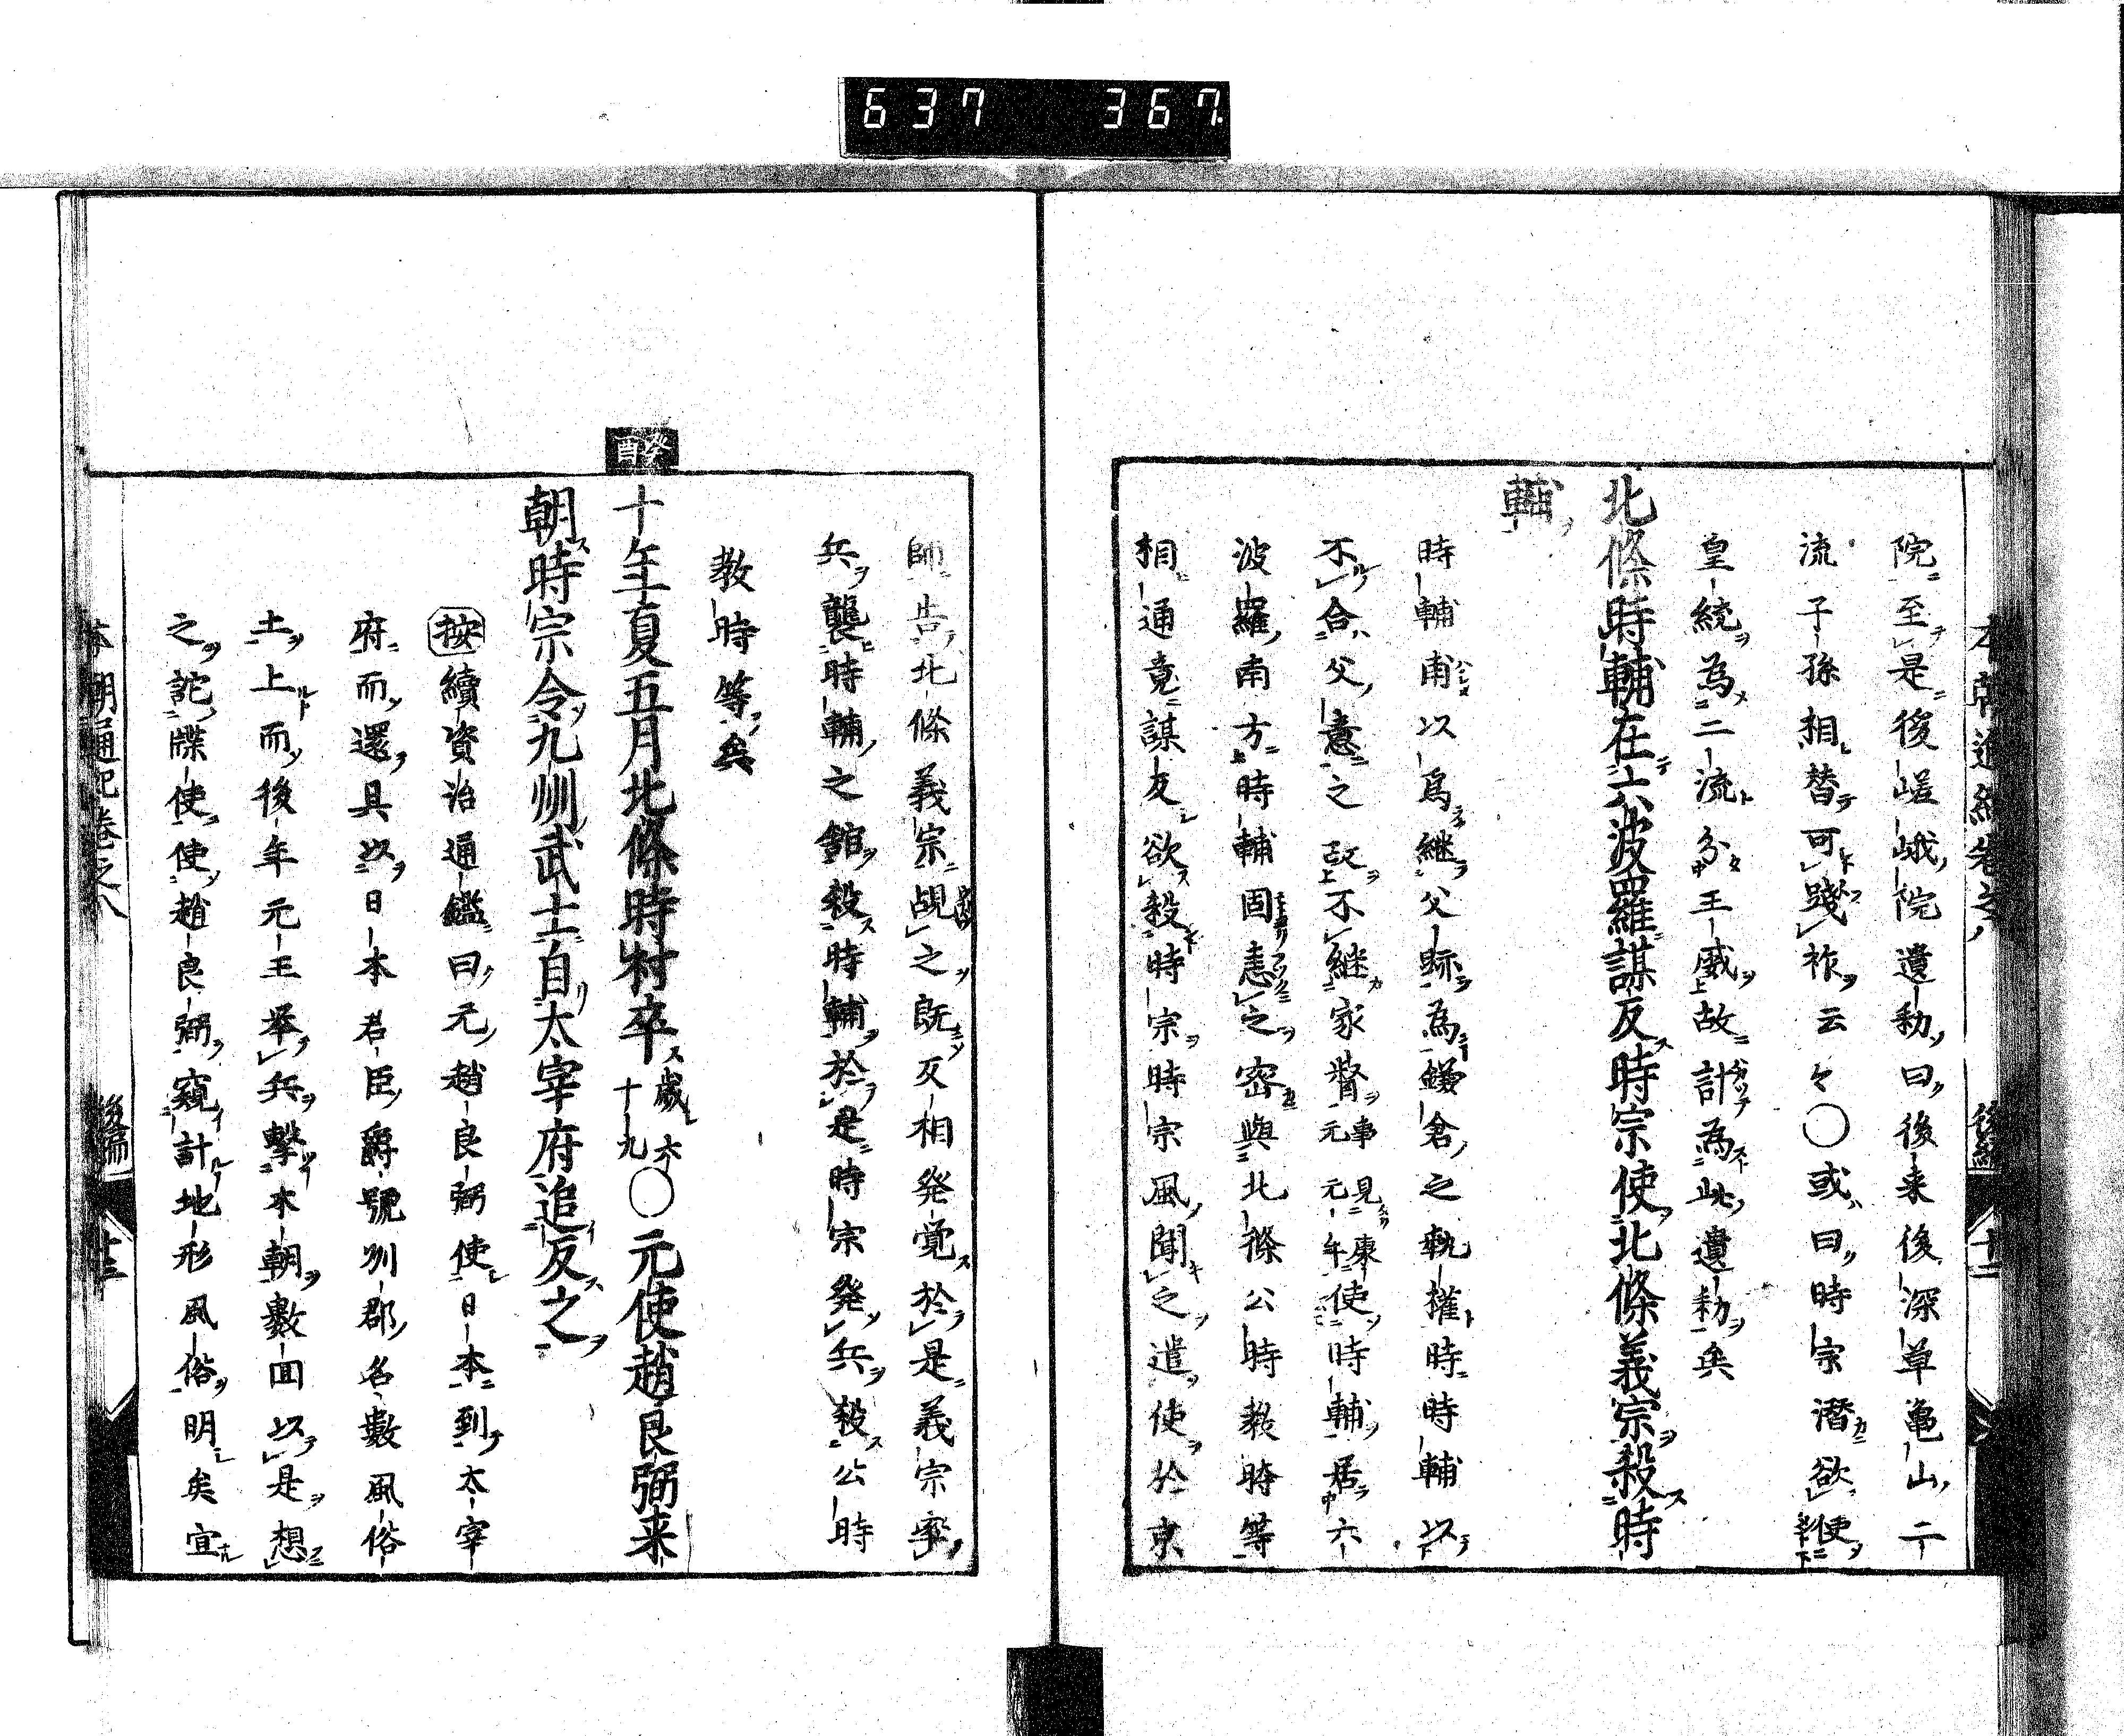 637 367
院至是後嵯峨院遺勅曰後来後深草亀山二
流子孫相替可踐祚云々〇或曰時宗潛欲使
皇統為二流分王威故計為此遺勅矣
北條時輔在六波羅謀反時宗使北條義宗殺時
輔
時輔甫以爲継父跡為鎌倉之執權時時輔以
不合父意之故不継家督事見東使時輔居六
元元年
波羅南方時輔固恚之密與北條公時教時等
相通竟謀反欲殺時宗時宗風聞之遣使於京
師告北條義宗覘之既及相発覚於是義宗率
兵襲時輔之館殺時輔於是時宗発兵殺公時
教時等矣
癸酉
十年夏五月北條時村卒歳六十九〇元使趙良弼来
朝時宗令九州武士自太宰府追反之
按續資治通鑑曰元趙良弼使日本到太宰
府而還具以日本君臣爵號州郡名數風俗
土上而後年元王舉兵擊本朝數回以是想
之詑牒使使趙良弼窺計地形風俗明矣宜
本朝通紀卷之八 後編 十三